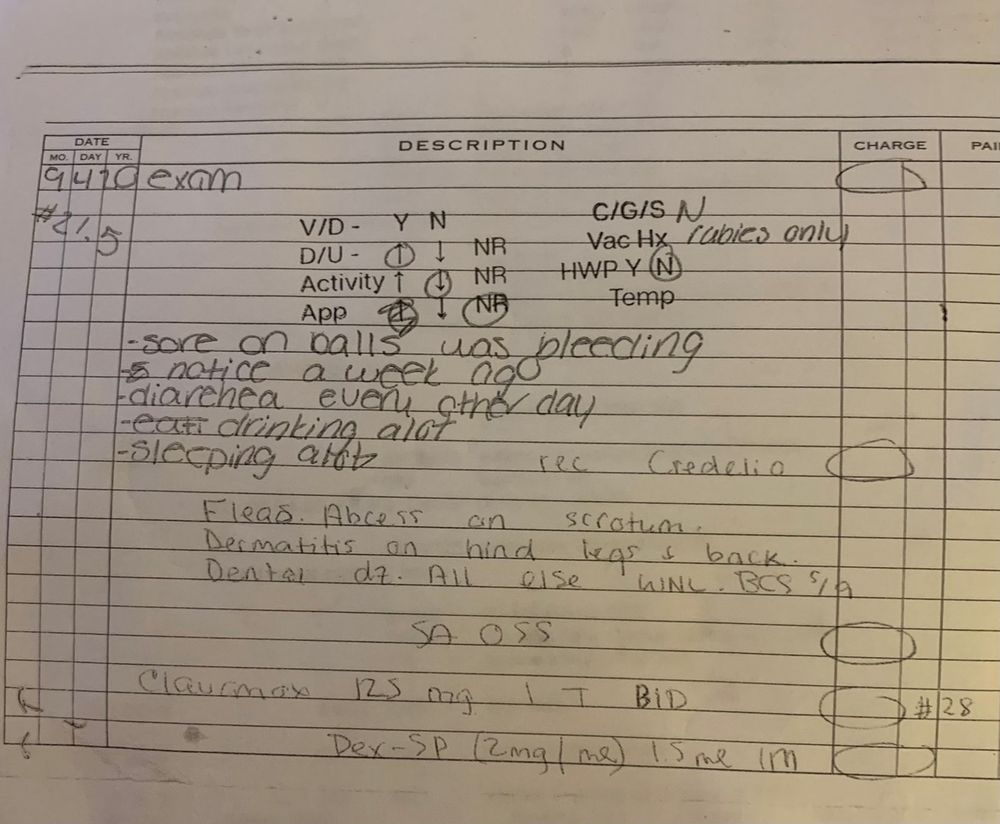 DATE DESCRIPTION CHARGE PAI
MO. DAY YR.
9 4 exam
#21.5
V/D - Y N C/G/S N
D/U - ↑ ↓ NR Vac Hx rabies only
Activity ↑ ↓ NR HWP Y N
App ↑ ↓ NR Temp
-sore on balls was bleeding
- notice a week ago
-diarehea every other day
-eat drinking alot
-sleeping alot rec Credelio
Fleas. Abcess on scrotum.
Dermatitis on hind legs & back.
Dental dz. All else WNL. BCS 5/9
SA OSS
Clavamox 125 mg 1 T BID #28
Dex-SP (2mg/ml) 1.5 ml IM